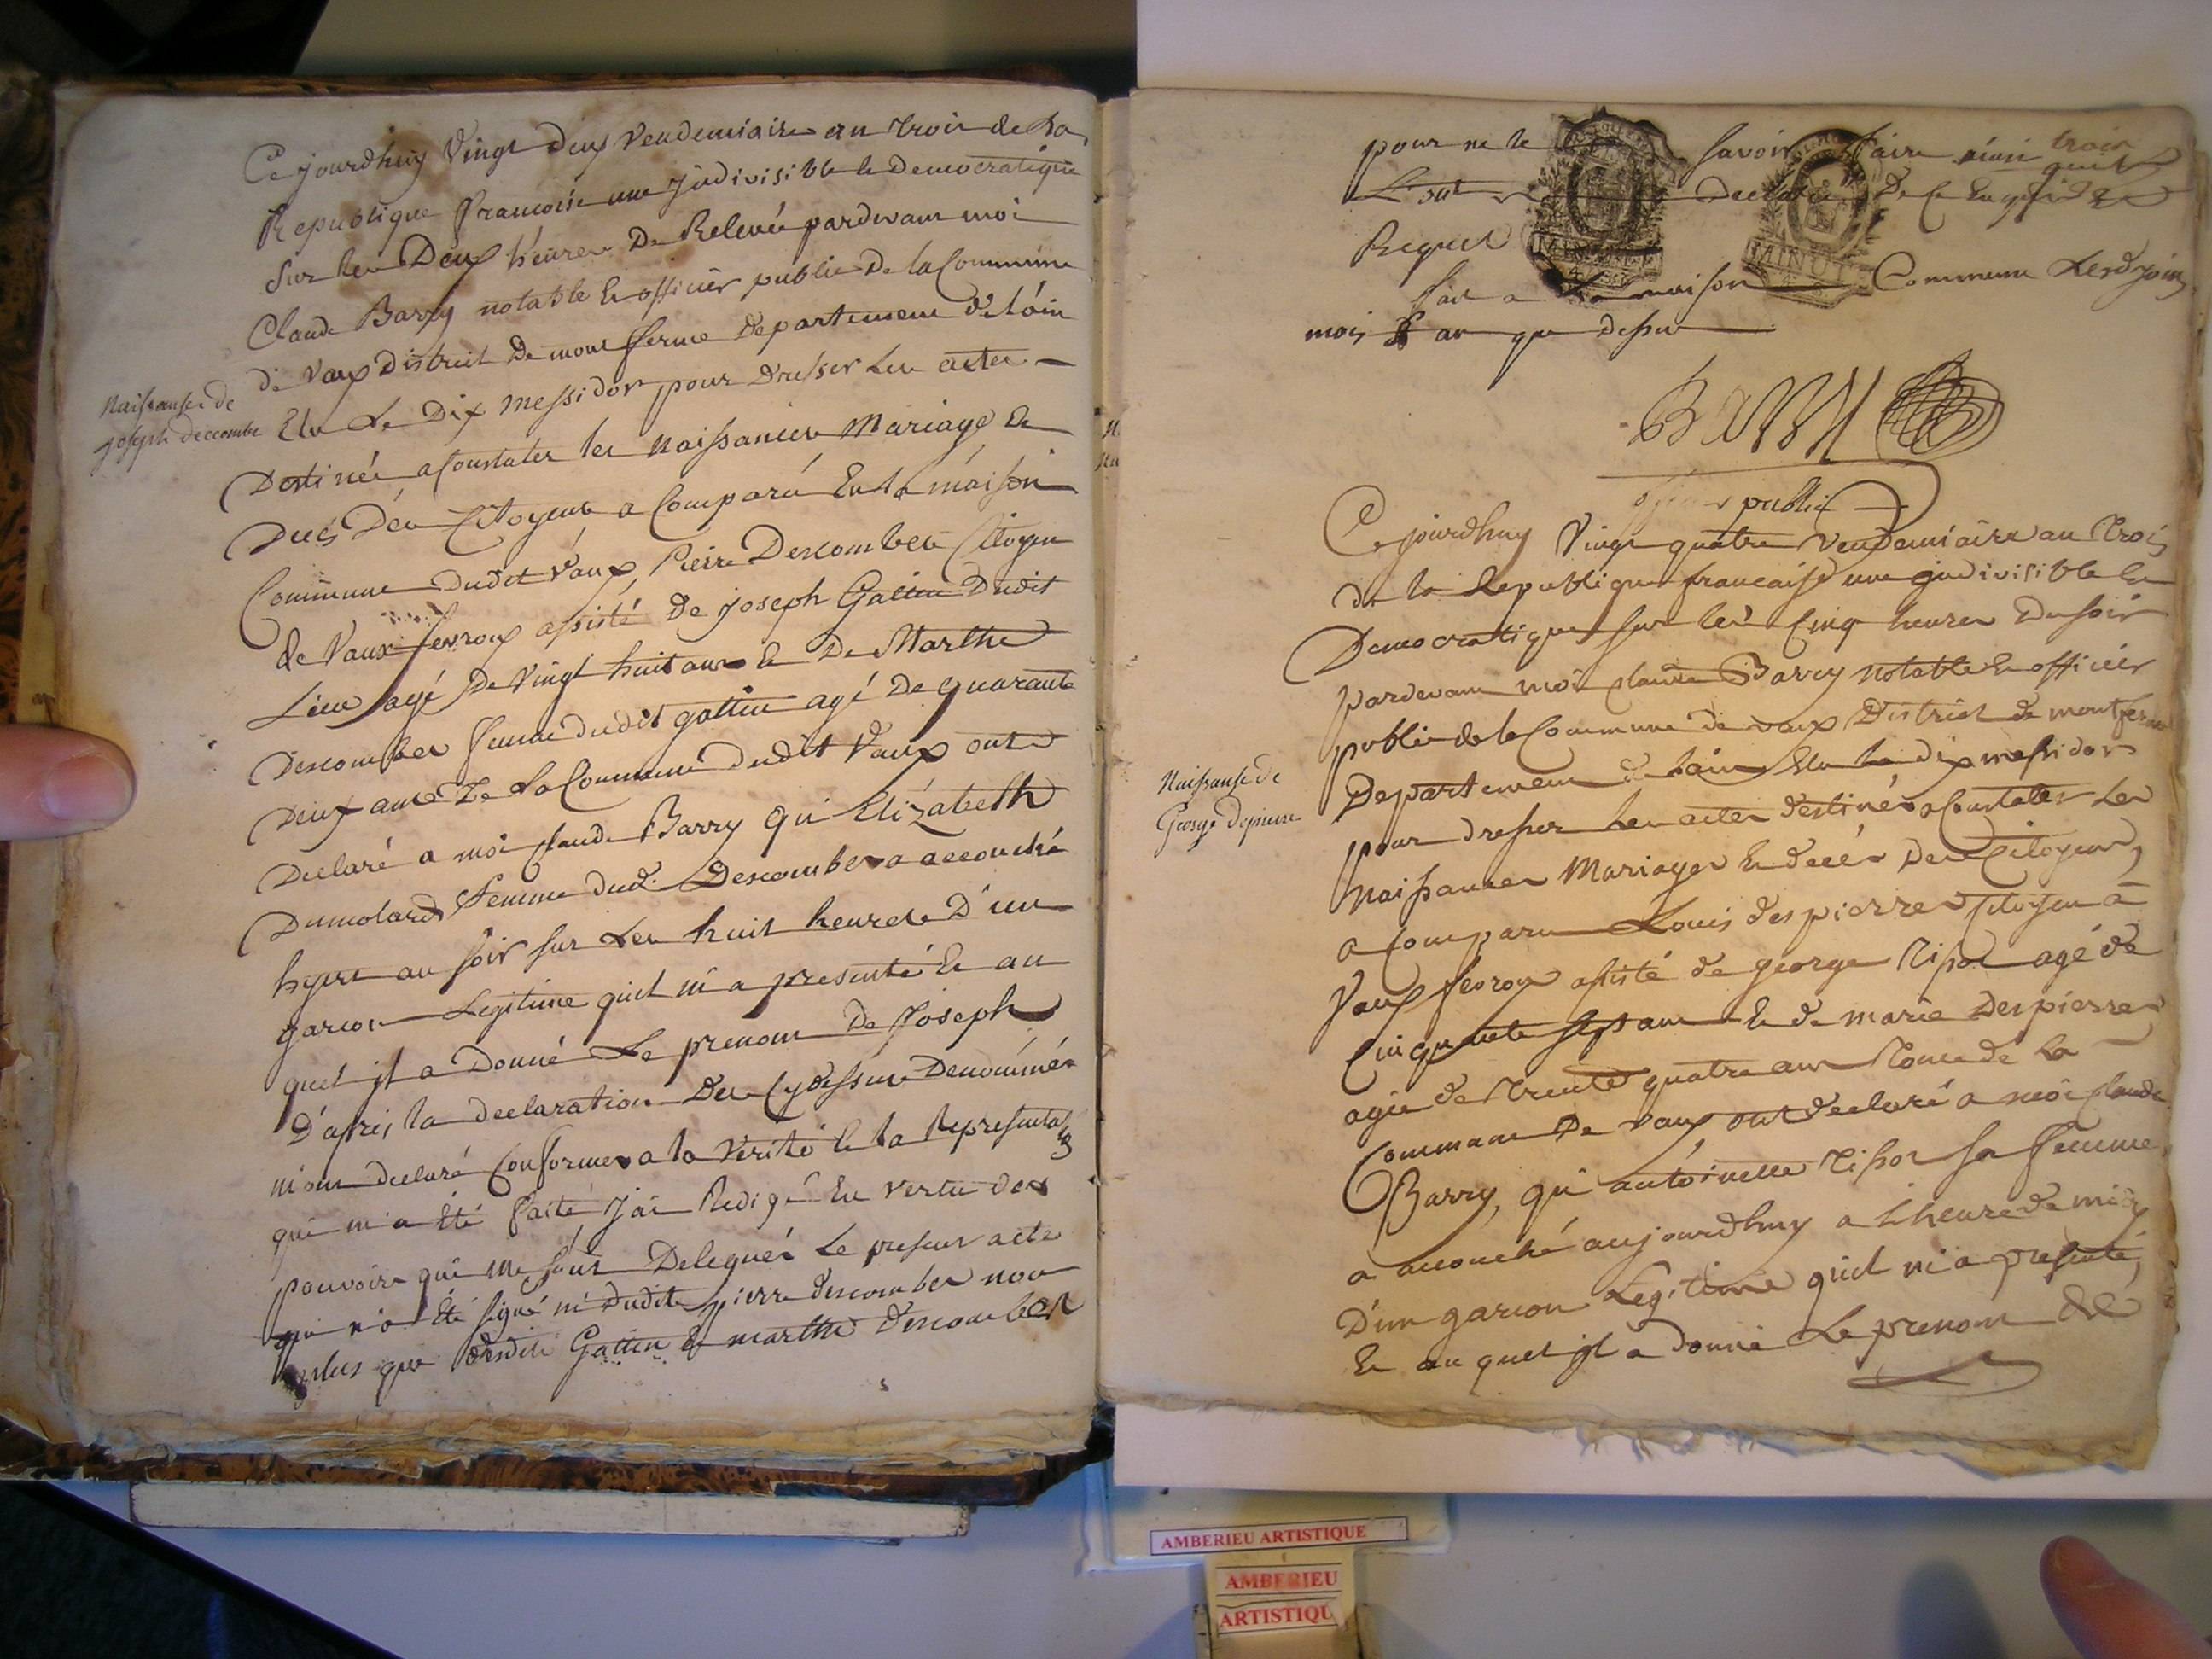 Ce jourdhuy vingt deux vendemiaire an trois de la
Republique francoise une jndivisible et Democratique
sur les Deux heures De Relevée pardevant moi
Claude Barry notable et officier public De la Commune
de vaux District De mont ferme departement de lain
Elu Le Dix messidor pour dresser Les actes
Naissanse de
joseph decombe
Destinés a Constater les Naissances Mariage et
Decés Des Citoyens a Comparu En la maison
Commune dudit vaux Pierre Descombes Citoyen
de Vaux fevroux assisté De joseph Gattin Dudit
Lieu agé De vingt huit ans et De Marthe
Descombes femme dudit gattin agé De quarante
Deux ans De La Commune dudit Vaux ont
Declaré a moi Claude Barry qui Elizabeth
Dumolard femme dud. Descombes a accouché
hyert au soir sur Les huit heures D'un
garcon Legitime quil m'a presenté Et au
quel jl a Donné Le prenom De Joseph
D'après la declaration Des Cydessus Denommés
m'ont declaré Conformes a la Verité Et la Representa
qui m'a été faite J'ai Redigé En vertu des
pouvoirs qui me sont Delegués Le present acte
qui n'a Eté signé ni Dudit pierre descombes non
plus que desdits Gattin Et marthe Descombes
pour ne le savoir faire ainsi trois
De ce Enquis
Requis
fait a La maison Commune Les jour
mois & an que dessus
Barry
officier public
Ce jourdhuy Vingt quatre vendemiaire an Trois
de la Republique francaise une jndivisible Et
Democratique sur les Cinq heures Du soir
pardevant moi claude Barry notable Et officier
public de la Commune de vaux District de montferme
Departement de lain Elu Le dix messidor
Naissanse de
George
pour dresser Les actes destinés a Constater Les
Naissances Mariages Et decés Des Citoyens,
a Comparu Louis despierres Citoyen a
Vaux fevroux assisté de george Tissot agé de
Cinquante sept ans Et de marie Despierres
agée de Trente quatre ans Tous de La
Commune De vaux ont declaré a moi Claude
Barry, qui antoinette Tissot sa femme
a accouché aujourdhuy a L'heure de midy
D'un garcon Legitime quil m'a presenté,
Et au quel jl a donné Le prenom de
AMBERIEU ARTISTIQUE
AMBERIEU
ARTISTIQU